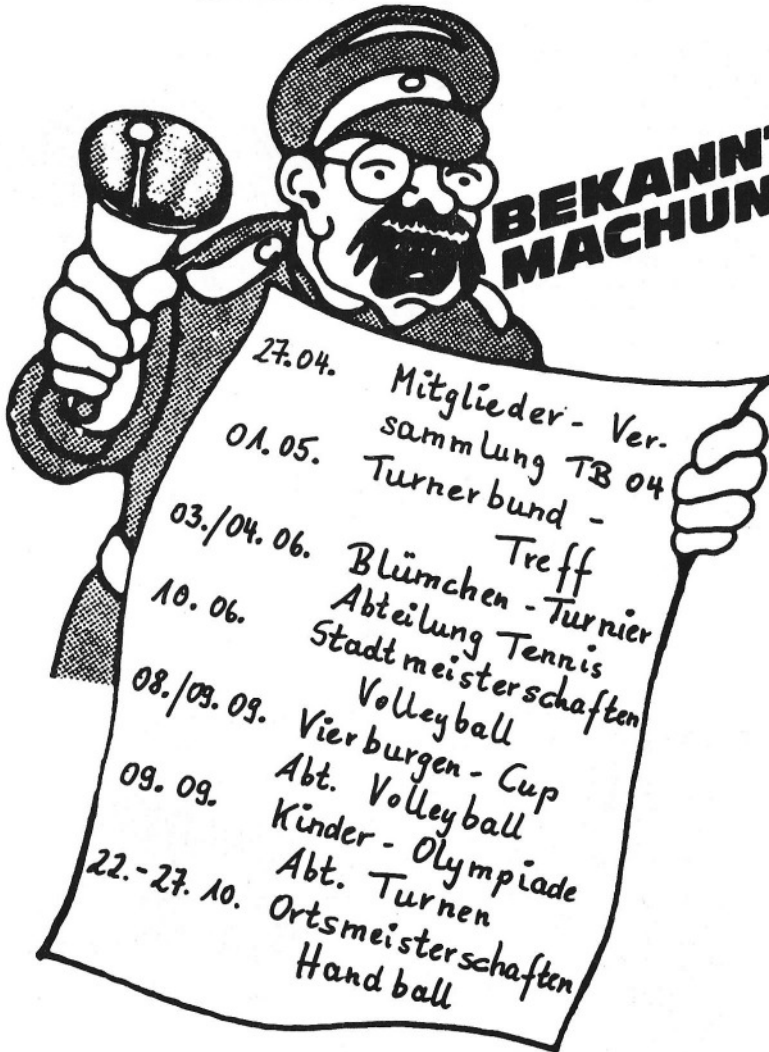 BEKANNT
MACHUN
27.04. Mitglieder - Ver-
sammlung TB 04
01.05. Turnerbund -
Treff
03./04.06. Blümchen - Turnier
Abteilung Tennis
10.06. Stadtmeisterschaften
Volleyball
08./09.09. Vierburgen - Cup
Abt. Volleyball
09.09. Kinder - Olympiade
Abt. Turnen
22.-27.10. Ortsmeisterschaften
Handball